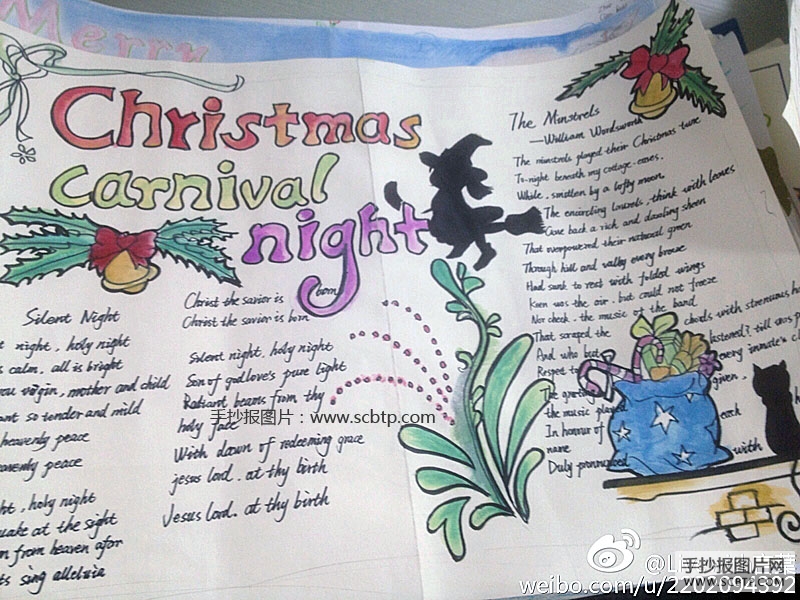 Merry
Christmas
carnival
night
Silent Night
night, holy night
calm, all is bright
you virgin, mother and child
so tender and mild
heavenly peace
heavenly peace
holy night
quake at the sight
from heaven afar
sing alleluia
Christ the savior is born
Christ the savior is born
Silent night, holy night
Son of god love's pure light
Radiant beams from thy
holy face
With dawn of redeeming grace
jesus lord, at thy birth
Jesus Lord, at thy birth
The Minstrels
—William Wordsworth
The minstrels played their Christmas tune
To-night beneath my cottage-eaves,
While, smitten by a lofty moon,
The encircling laurels, think with leaves
Gave back a rich and dazzling sheen
That overpowered their natural green
Through hill and valley every breeze
Had sunk to rest with folded wings
Keen was the air, but could not freeze
Nor check, the music of the band
That scraped the chords with strenuous
And who but listened? till was
Respect to every inmate's
The greeting given,
the music played
In honour of each
name
Duly pronounced with
手抄报图片：www.scbtp.com
手抄报图片网
www.scbtp.com
weibo.com/u/2202694392